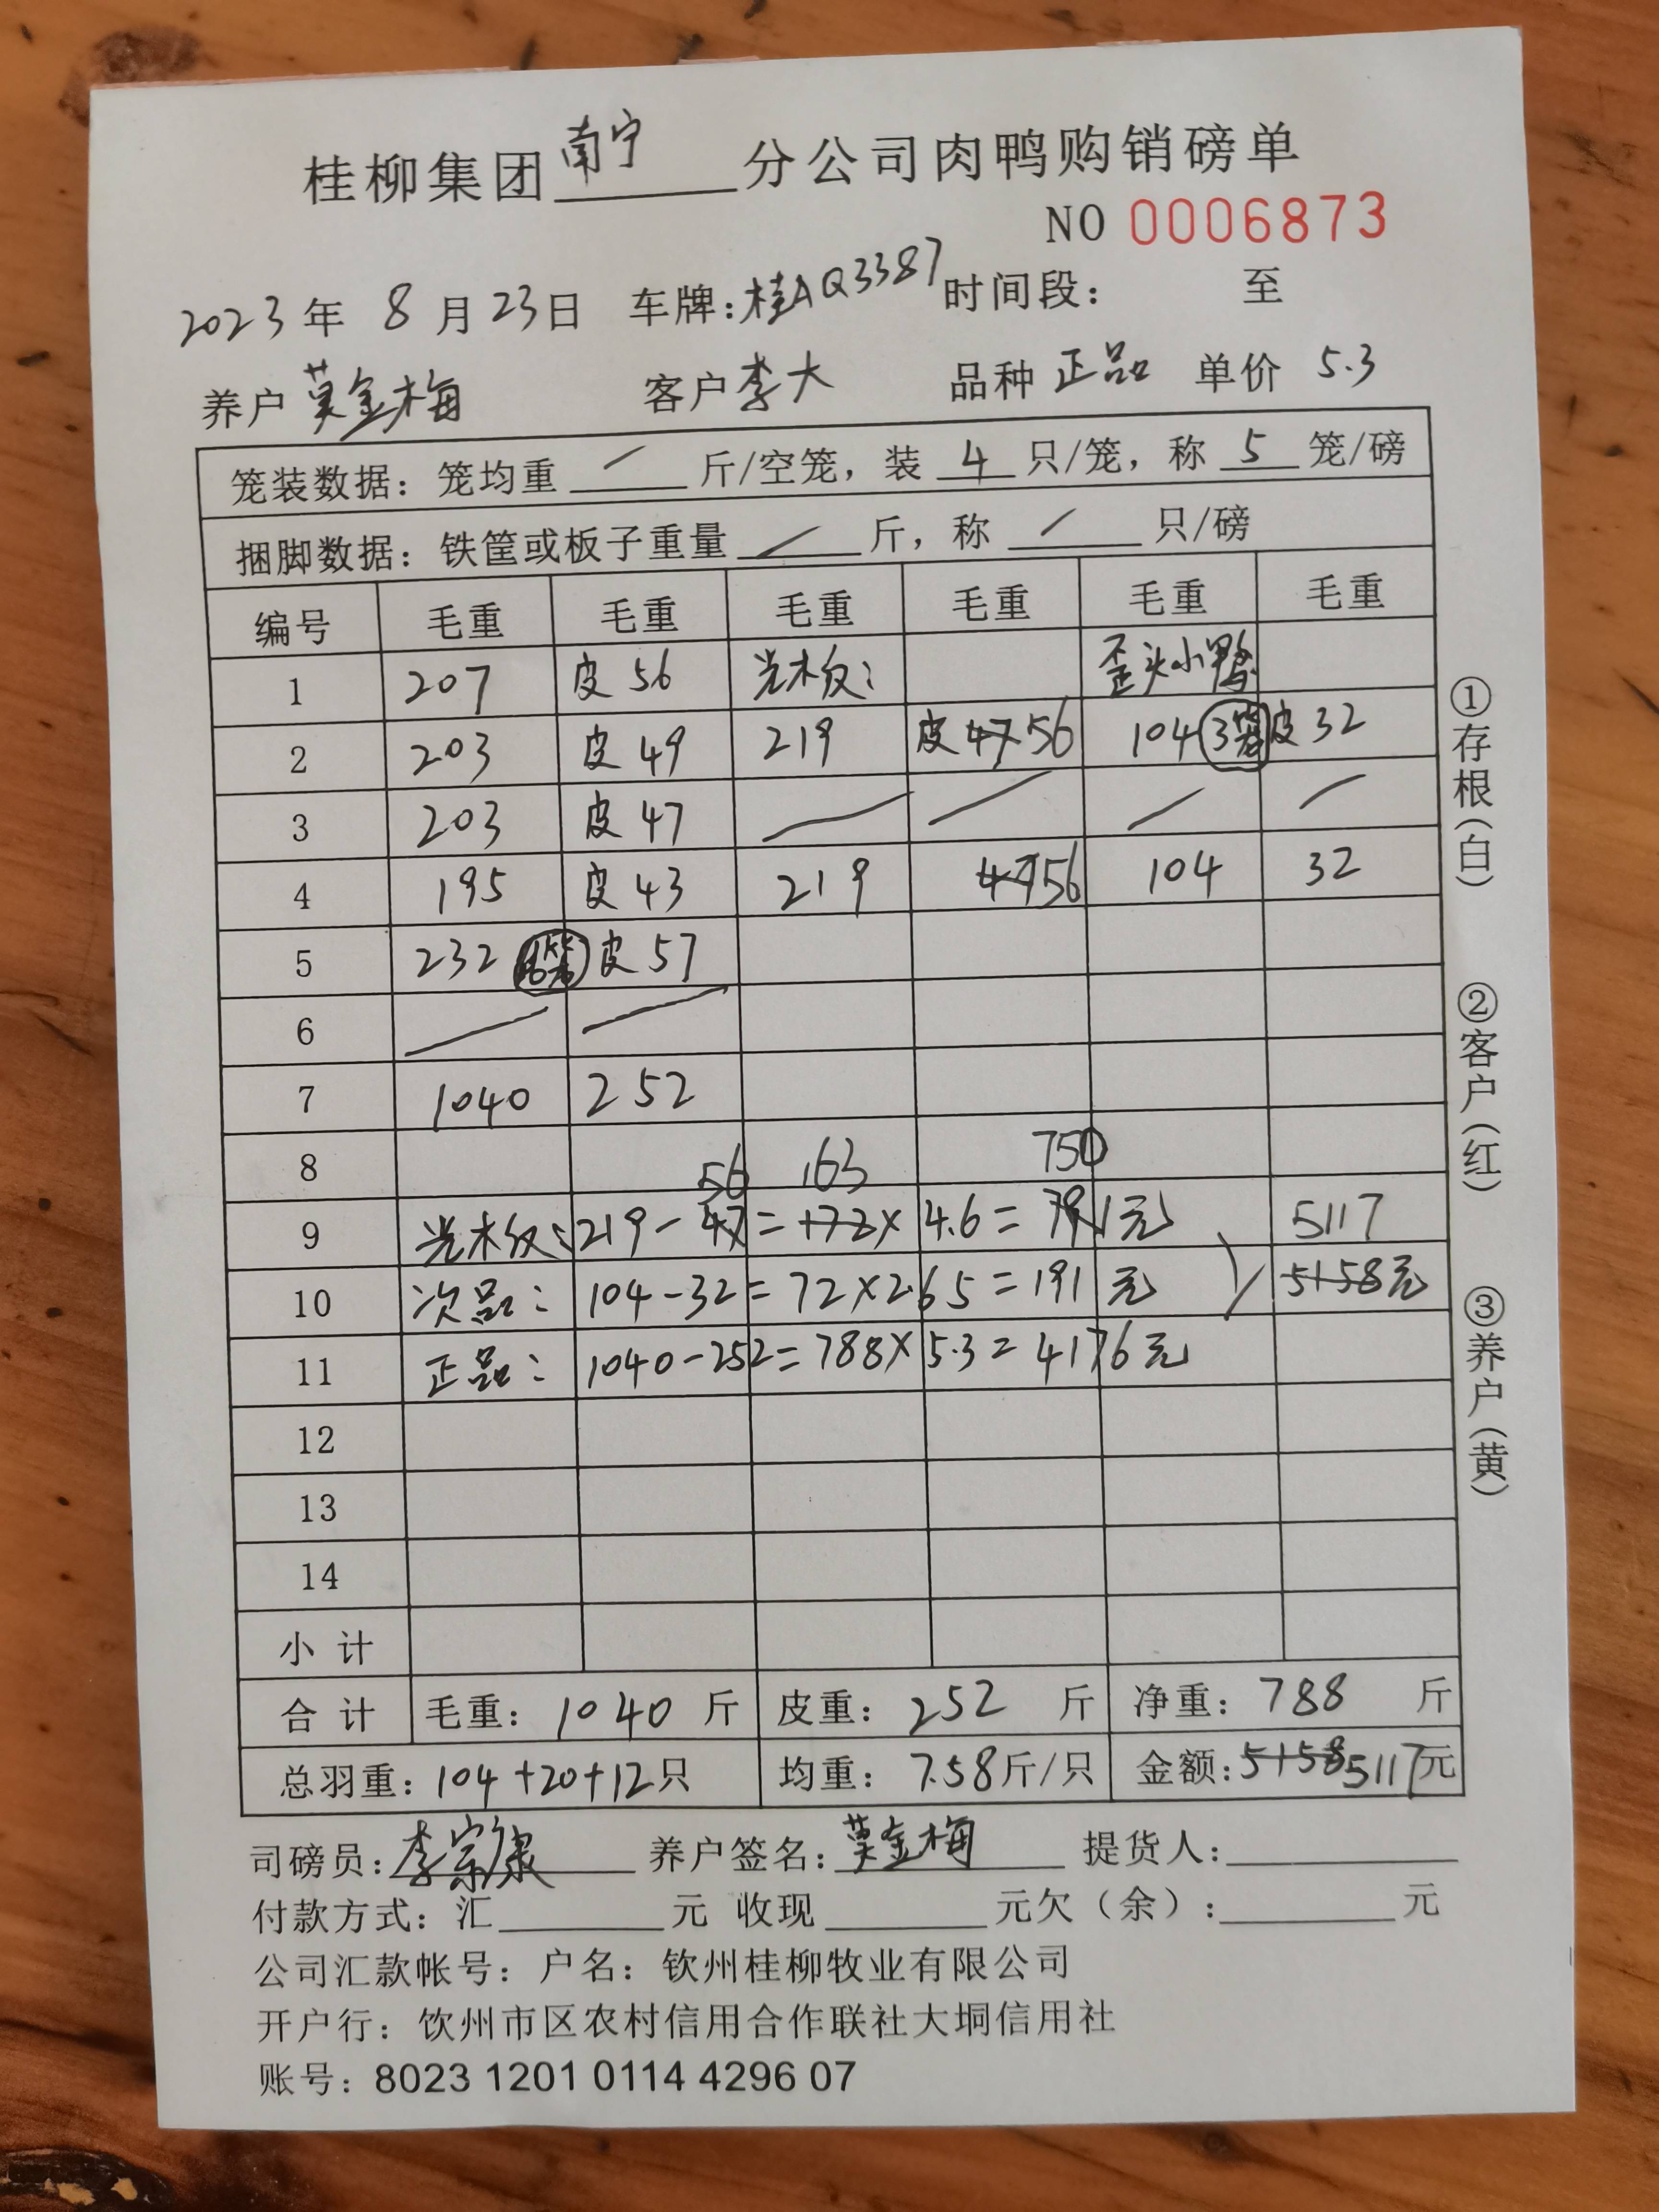 桂柳集团南宁分公司肉鸭购销磅单
NO 0006873
2023年 8月23日 车牌:桂AQ3387 时间段: 至
养户 莫金梅 客户 李大 品种 正品 单价 5.3
笼装数据: 笼均重 / 斤/空笼, 装 4 只/笼, 称 5 笼/磅
捆脚数据: 铁筐或板子重量 / 斤, 称 / 只/磅
编号 毛重 毛重 毛重 毛重 毛重 毛重
1 207 皮56 光木纹: 歪头小鸭
2 203 皮49 219 皮47 56 104 皮32
3 203 皮47 / / / /
4 195 皮43 219 47 56 104 32
5 232 皮57
6 / /
7 1040 252
8 56 163 750
9 光木纹: 219-47=172×4.6=791元 5117
10 次品: 104-32=72×2.65=191元 5158元
11 正品: 1040-252=788×5.3=4176元
12
13
14
小计
合计 毛重: 1040 斤 皮重: 252 斤 净重: 788 斤
总羽重: 104+20+12只 均重: 7.58斤/只 金额: 5158 5117元
司磅员: 李宗康 养户签名: 莫金梅 提货人:
付款方式: 汇 元 收现 元欠(余): 元
公司汇款帐号: 户名: 钦州桂柳牧业有限公司
开户行: 钦州市区农村信用合作联社大垌信用社
账号: 8023 1201 0114 4296 07
①存根(白)
②客户(红)
③养户(黄)